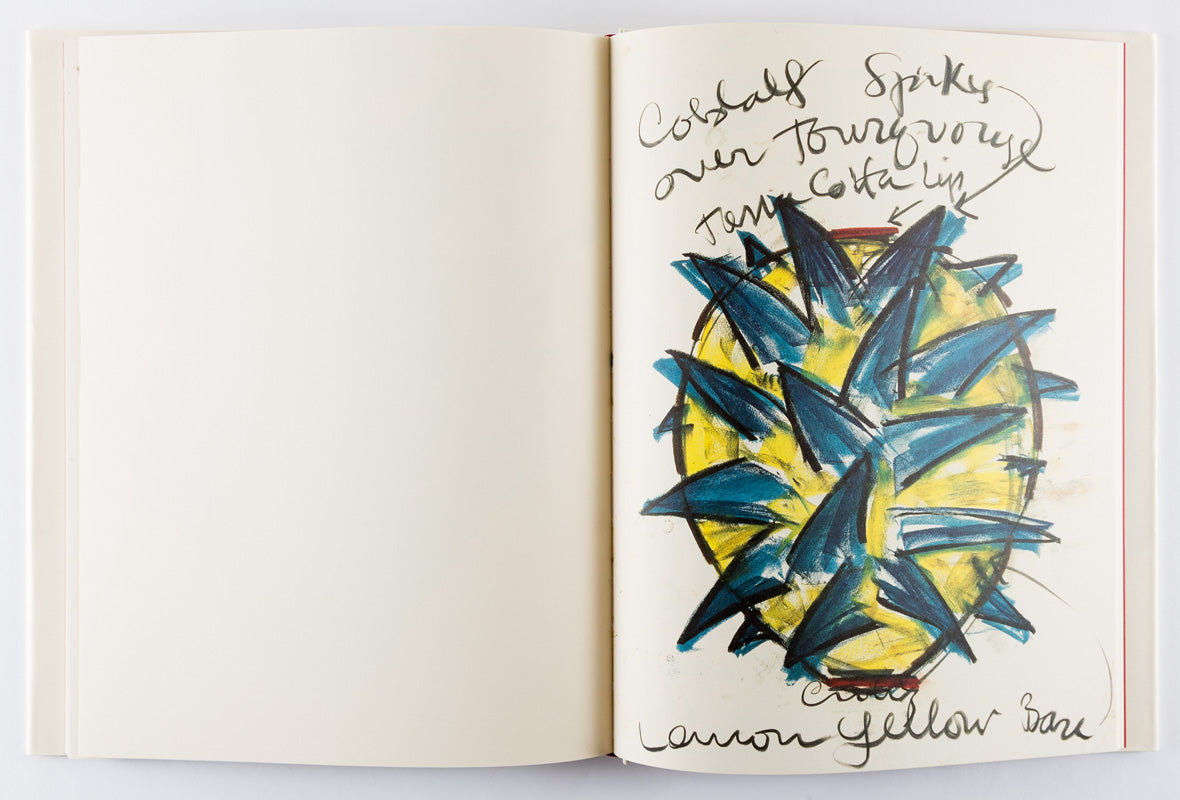 Cobalt Spikes
over Tourquoise
Terra Cotta Lip
Lemon Yellow Base